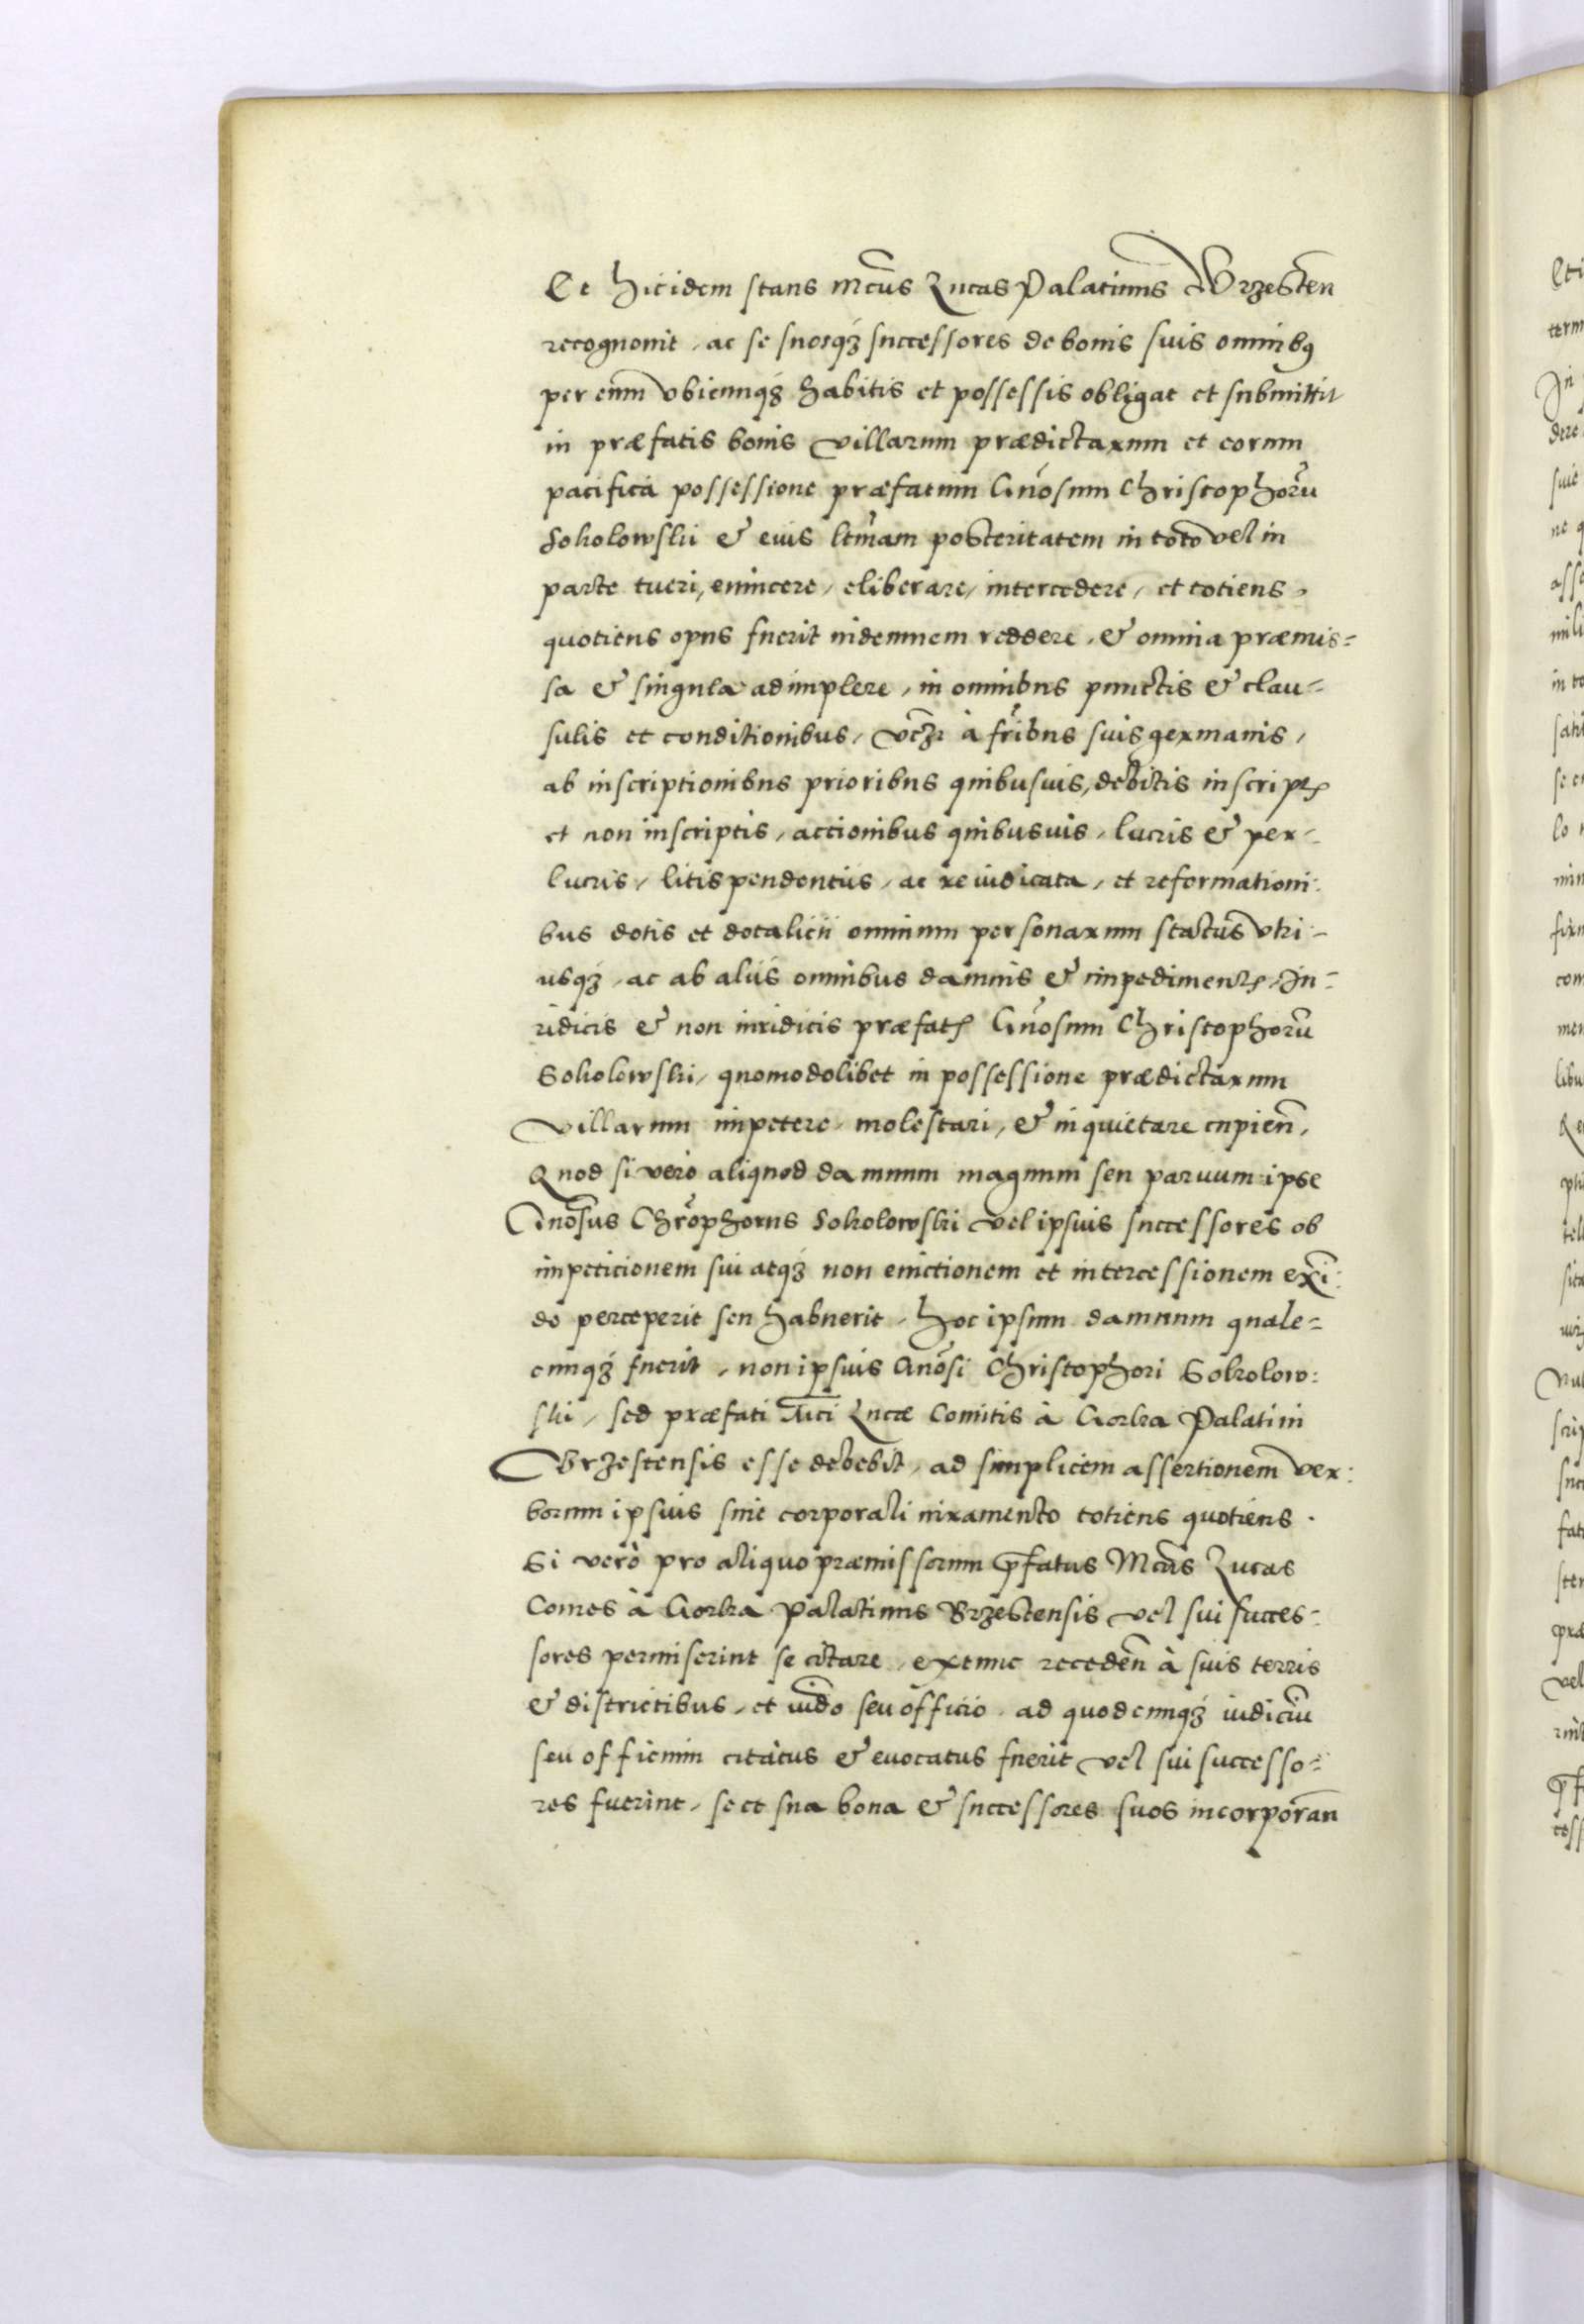 Et hic idem stans Mcus Lucas Palatinus Brzesten
recognouit, ac se suosq3 successores de bonis suis omnibq
per eum vbicunq3 habitis et possessis obligat et submittit
in præfatis bonis villarum prædictarum et eorum
pacifica possessione præfatum Gnosum Christophorū
Sokolowski & eius ltimam posteritatem in toto vel in
parte tueri, euincere, eliberare, intercedere, et totiens,
quotiens opus fuerit indemnem reddere, & omnia præmis=
sa & singula adimplere, in omnibus punctis & clau=
sulis et conditionibus, vtz à fribus suis germanis,
ab inscriptionibus prioribus quibusuis, debitis inscript
et non inscriptis, actionibus quibusuis, lucris & per=
lucris, litispendentiis, ac re iudicata, et reformationi:
bus dotis et dotalicii omnium personarum status vtri=
usq3, ac ab aliis omnibus damnis & impediment, Iu=
ridicis & non iuridicis præfat Gnosum Christophorū
Sokolowski, quomodolibet in possessione prædictarum
villarum impetere, molestari, & inquietare cupien,
Quod si vero aliquod damnum magnum seu paruum ipse
Gnosus Chrophorus Sokolowski vel ipsuis successores ob
impeticionem sui atq3 non euictionem et intercessionem exi:
do perceperit seu habuerit, hoc ipsum damnum quale=
cunq3 fuerit, non ipsuis Gnosi Christophori Sokolow:
ski, sed præfati Mci Lucæ Comitis à Gorka Palatini
Brzestensis esse debebit, ad simplicem assertionem ver:
borum ipsuis sine corporali iuramento totiens quotiens.
Si verò pro aliquo præmissorum pfatus Mcus Lucas
Comes à Gorka Palatinus Brzestensis vel sui succes=
sores permiserint se citare, extunc receden à suis terris
& districtibus, et iudo seu officio, ad quodcunq3 iudiciū
seu officium citatus & euocatus fuerit vel sui successo=
res fuerint, se et sua bona & successores suos incorporan